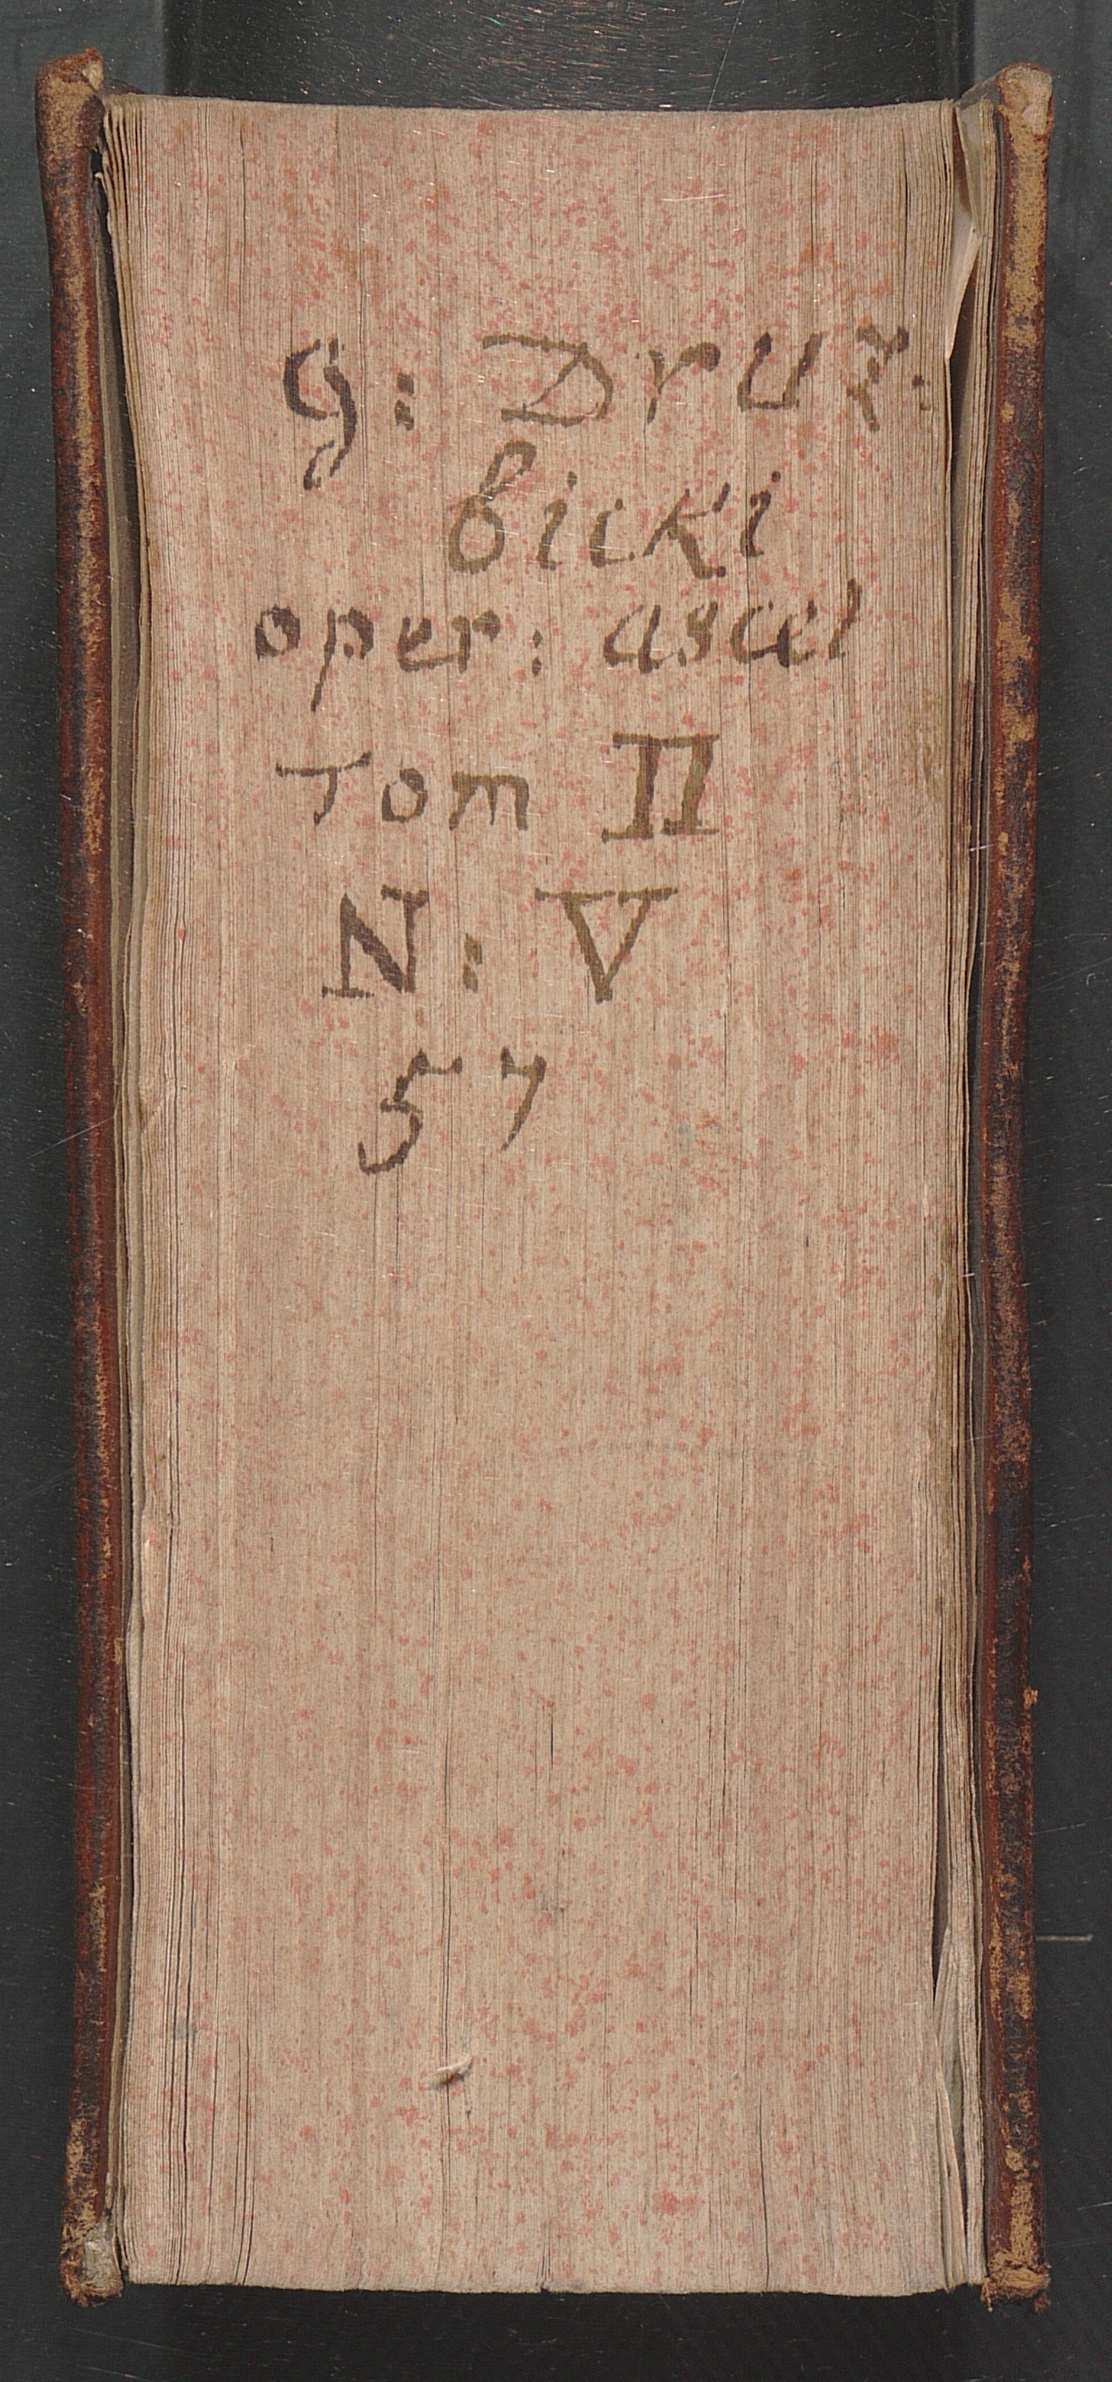 G: Druz:
bicki
oper: ascet
Tom II
N: V
57